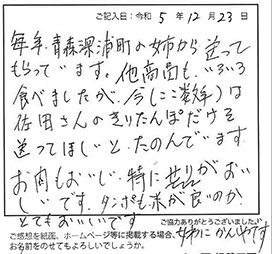 ご記入日：令和 5 年 12 月 23 日
毎年、青森深浦町の姉から送って
もらっています。他商品も、いろいろ
食べましたが、今(ここ数年)は
佐田さんのきりたんぽだけを
送ってほしいと、たのんでいます。
お肉もおいしい、特に芹がおい
しいです。タンポも米が良いのか、
とてもおいしいです
ご協力ありがとうございました。
ご感想を紙面、ホームページ等に掲載する場合、
お名前をのせてもよろしいでしょうか。
姉にかんしゃです